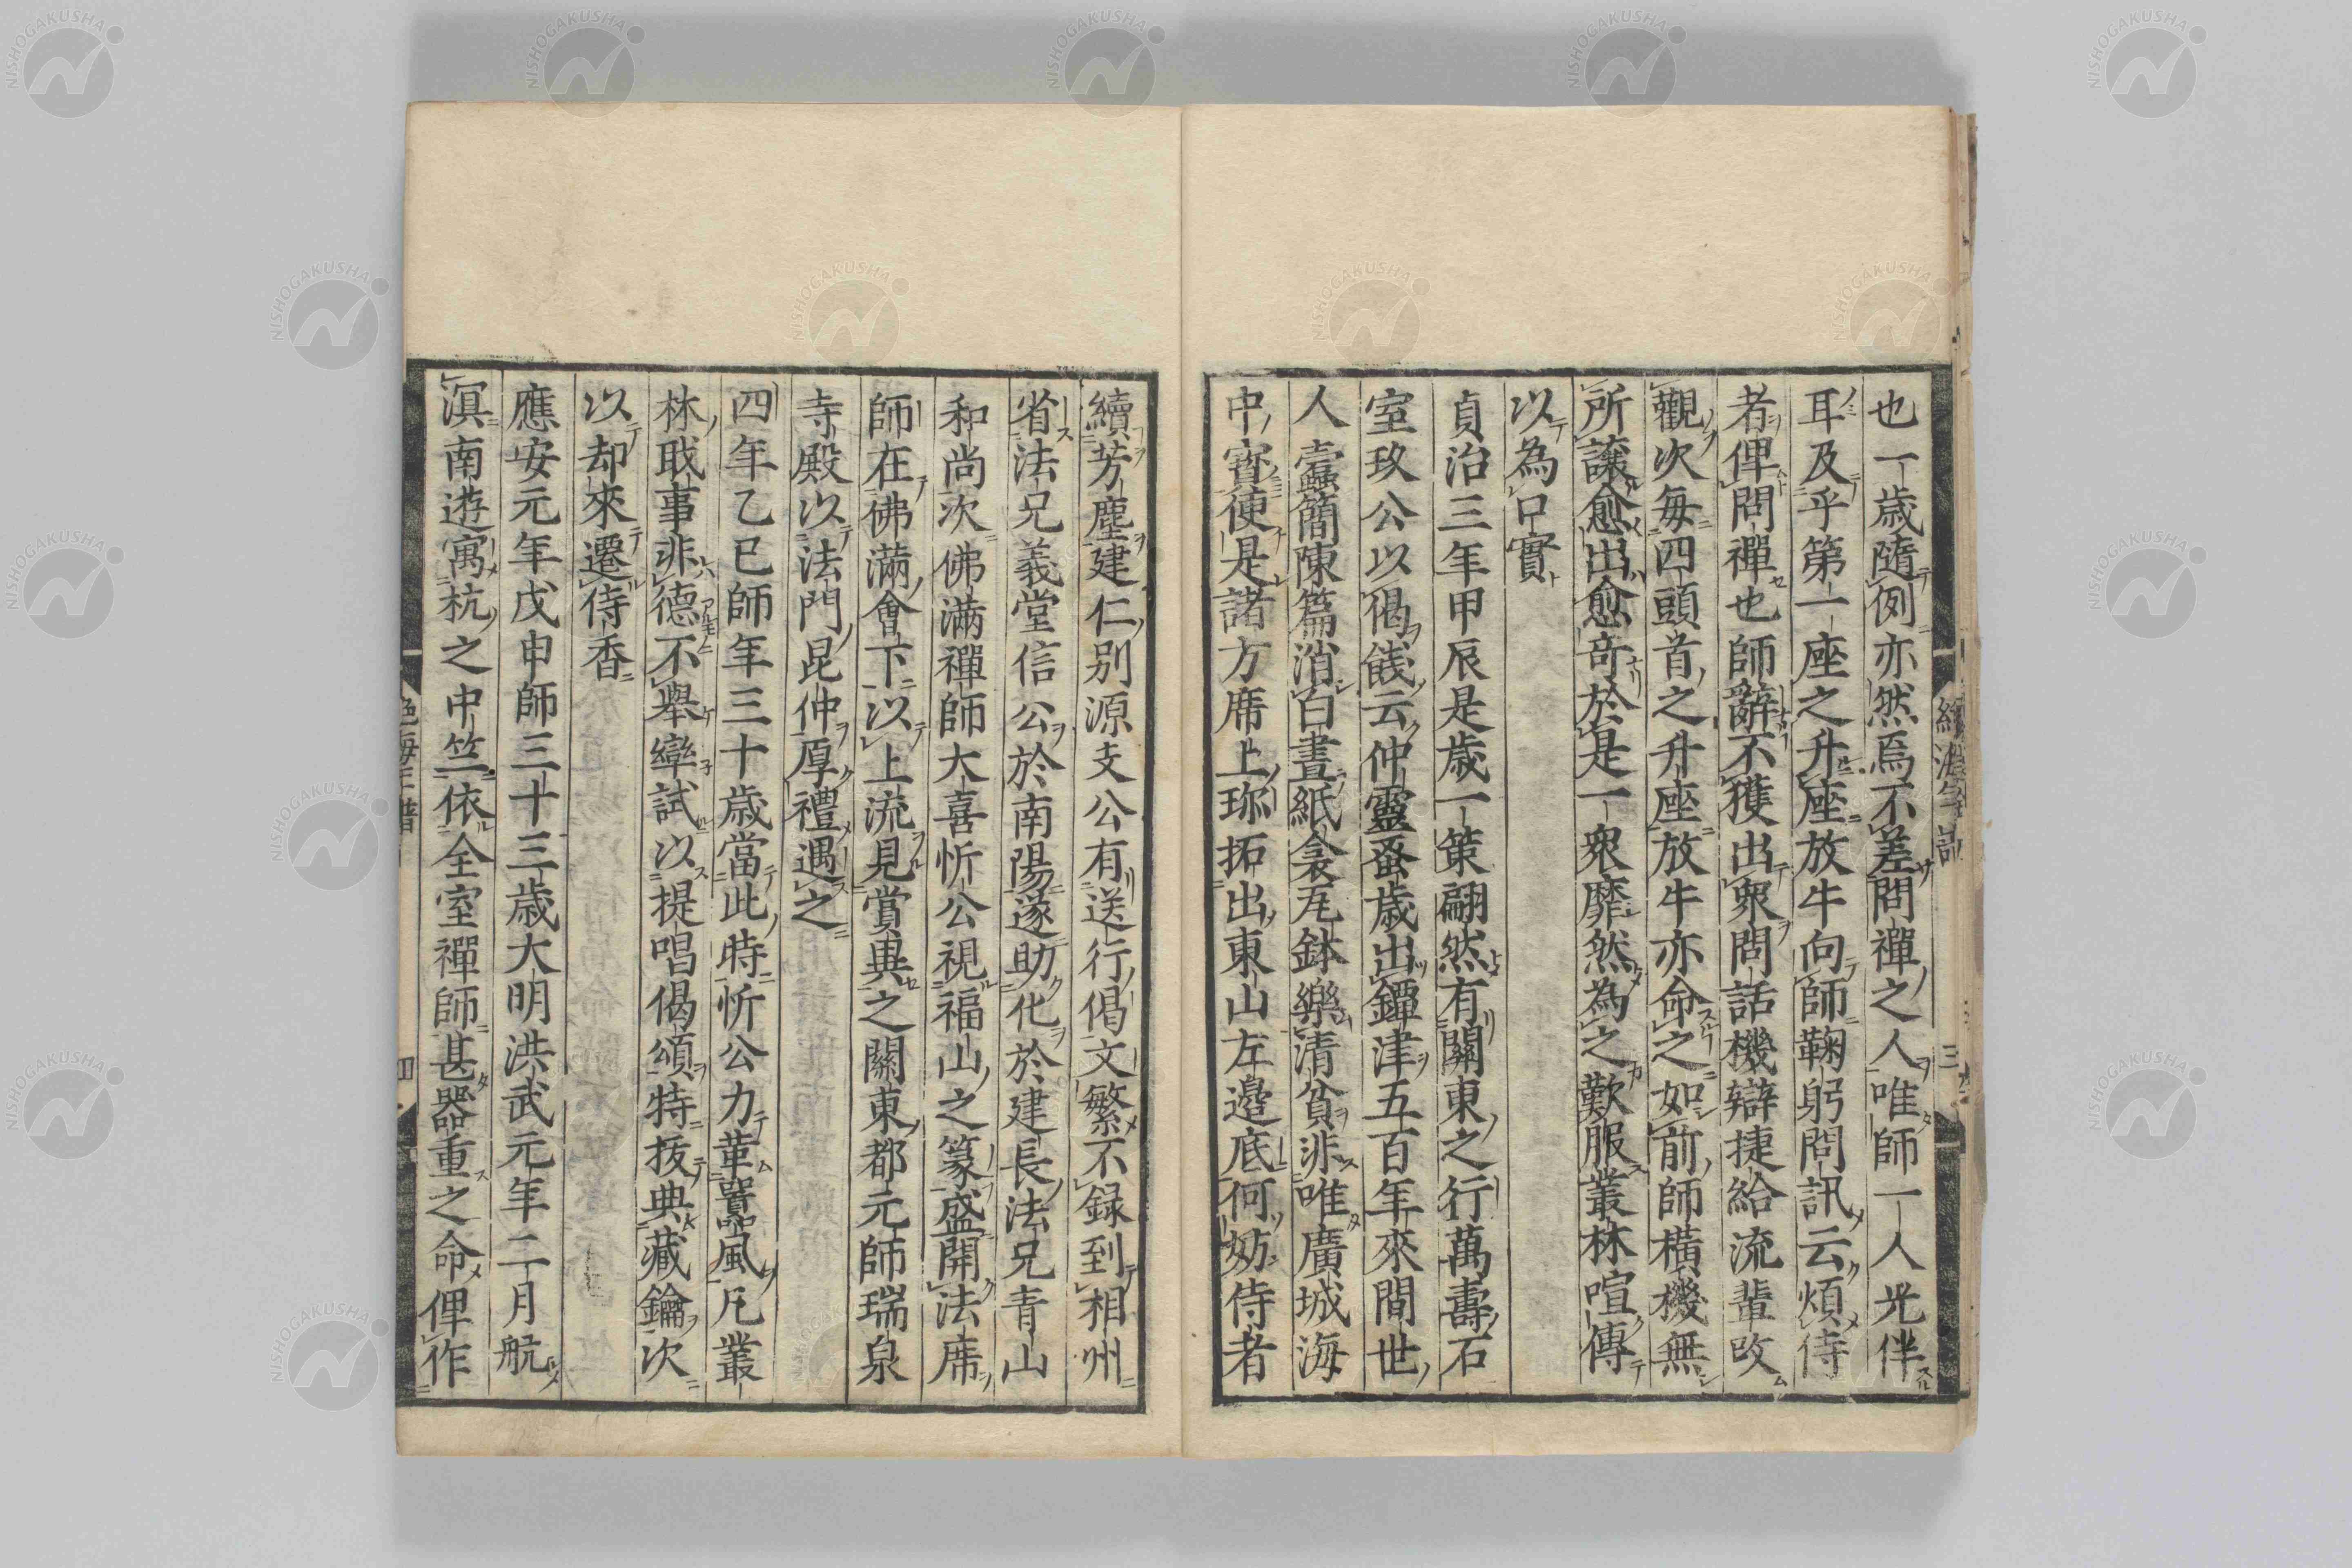 也一歳隨例亦然焉不差問禪之人唯師一人光伴
耳及乎第一座之升座放牛向師鞠躬問訊云煩侍
者俾問禪也師辭不獲出衆問話機辯捷給流輩改
觀次毎四頭首之升座放牛亦命之如前師横機無
所讓愈出愈竒於是一衆靡然為之歎服叢林喧傳
以為口實
貞治三年甲辰是歳一策翩然有關東之行萬壽石
室玖公以偈餞云仲靈蚤歳出鐔津五百年來間世
人蠹簡陳篇消白晝紙衾瓦鉢樂清貧非唯廣城海
中寳便是諸方席上珎拓出東山左邉底何妨侍者
續芳塵建仁別源支公有送行偈文繁不録到相州
省法兄義堂信公於南陽遂助化於建長法兄青山
和尚次佛滿禪師大喜忻公視福山之篆盛開法席
師在佛滿會下以上流見賞輿之關東都元師瑞泉
寺殿以法門昆仲厚禮遇之
四年乙巳師年三十歳當此時忻公力革嚚風凡叢
林戢事非德不舉孿試以提唱偈頌特抜典藏鑰次
以却來遷侍香
應安元年戊申師三十三歳大明洪武元年二月航
溟南遊寓杭之中竺依全室禪師甚器重之命俾作
NISHOGAKUSHA